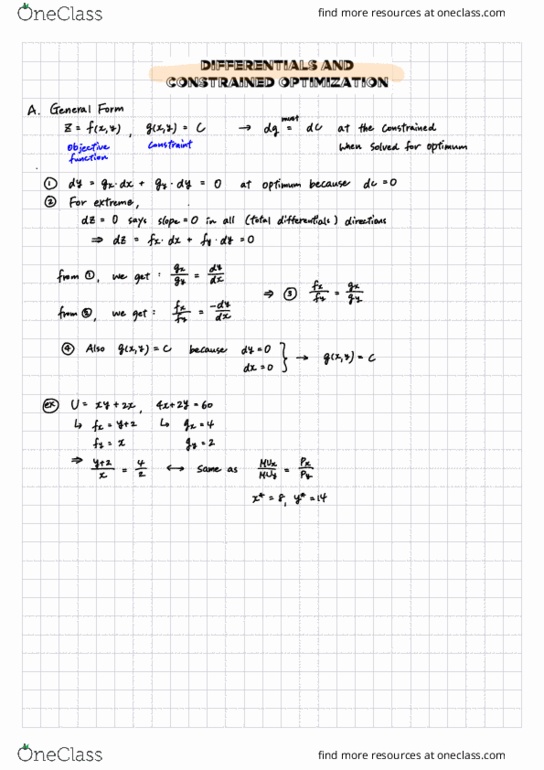 OneClass find more resources at oneclass.com
DIFFERENTIALS AND
CONSTRAINED OPTIMIZATION
A. General Form
Z = f(x,y) , g(x,y) = C → dg must = dc at the constrained
Objective function Constraint when solved for optimum
① dy = gx·dx + gy·dy = 0 at optimum because dc=0
② For extreme,
dz = 0 says slope=0 in all (total differentials) directions
⇒ dz = fx·dx + fy·dy = 0
from ①, we get : gx/gy = dy/dx
⇒ ③ fx/fy = gx/gy
from ②, we get : fx/fy = -dy/dx
④ Also g(x,y) = C because dy=0
dx=0 } → g(x,y) = C
ex U = xy + 2x , 4x+2y = 60
↳ fx = y+2 ↳ gx = 4
fy = x gy = 2
⇒ y+2/x = 4/2 ↔ same as MUx/MUy = Px/Py
x* = 8, y* = 14
OneClass find more resources at oneclass.com